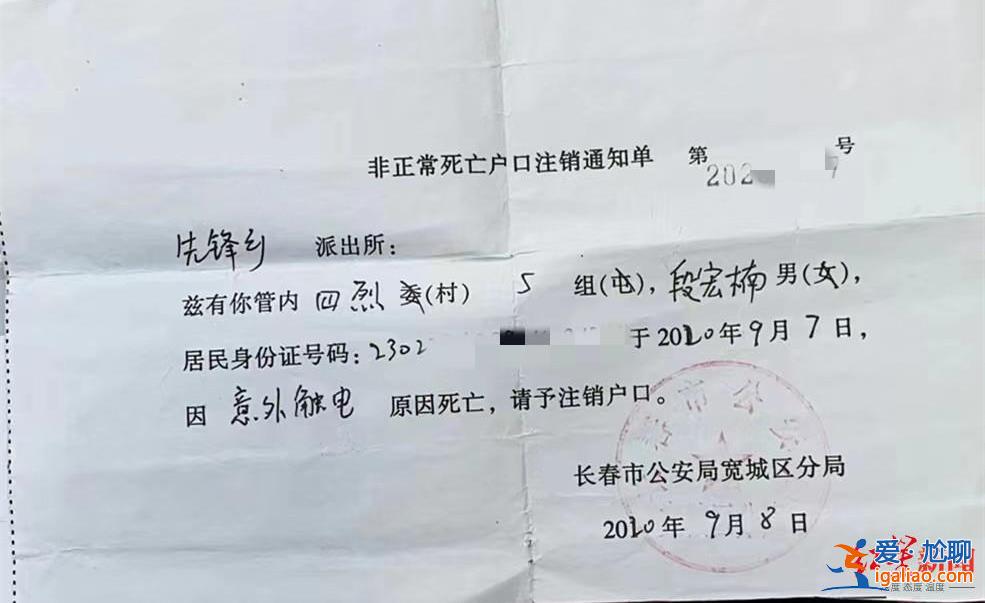 非正常死亡户口注销通知单 第 202 7 号
先锋乡 派出所：
兹有你管内 四烈 委(村) 5 组(屯)，段宏楠 男(女)，
居民身份证号码：2302 于2020年9月7日，
因 意外触电 原因死亡，请予注销户口。
长春市公安局宽城区分局
2020年9月8日
爱·尬聊
igaliao.com
新闻
速度 态度 温度